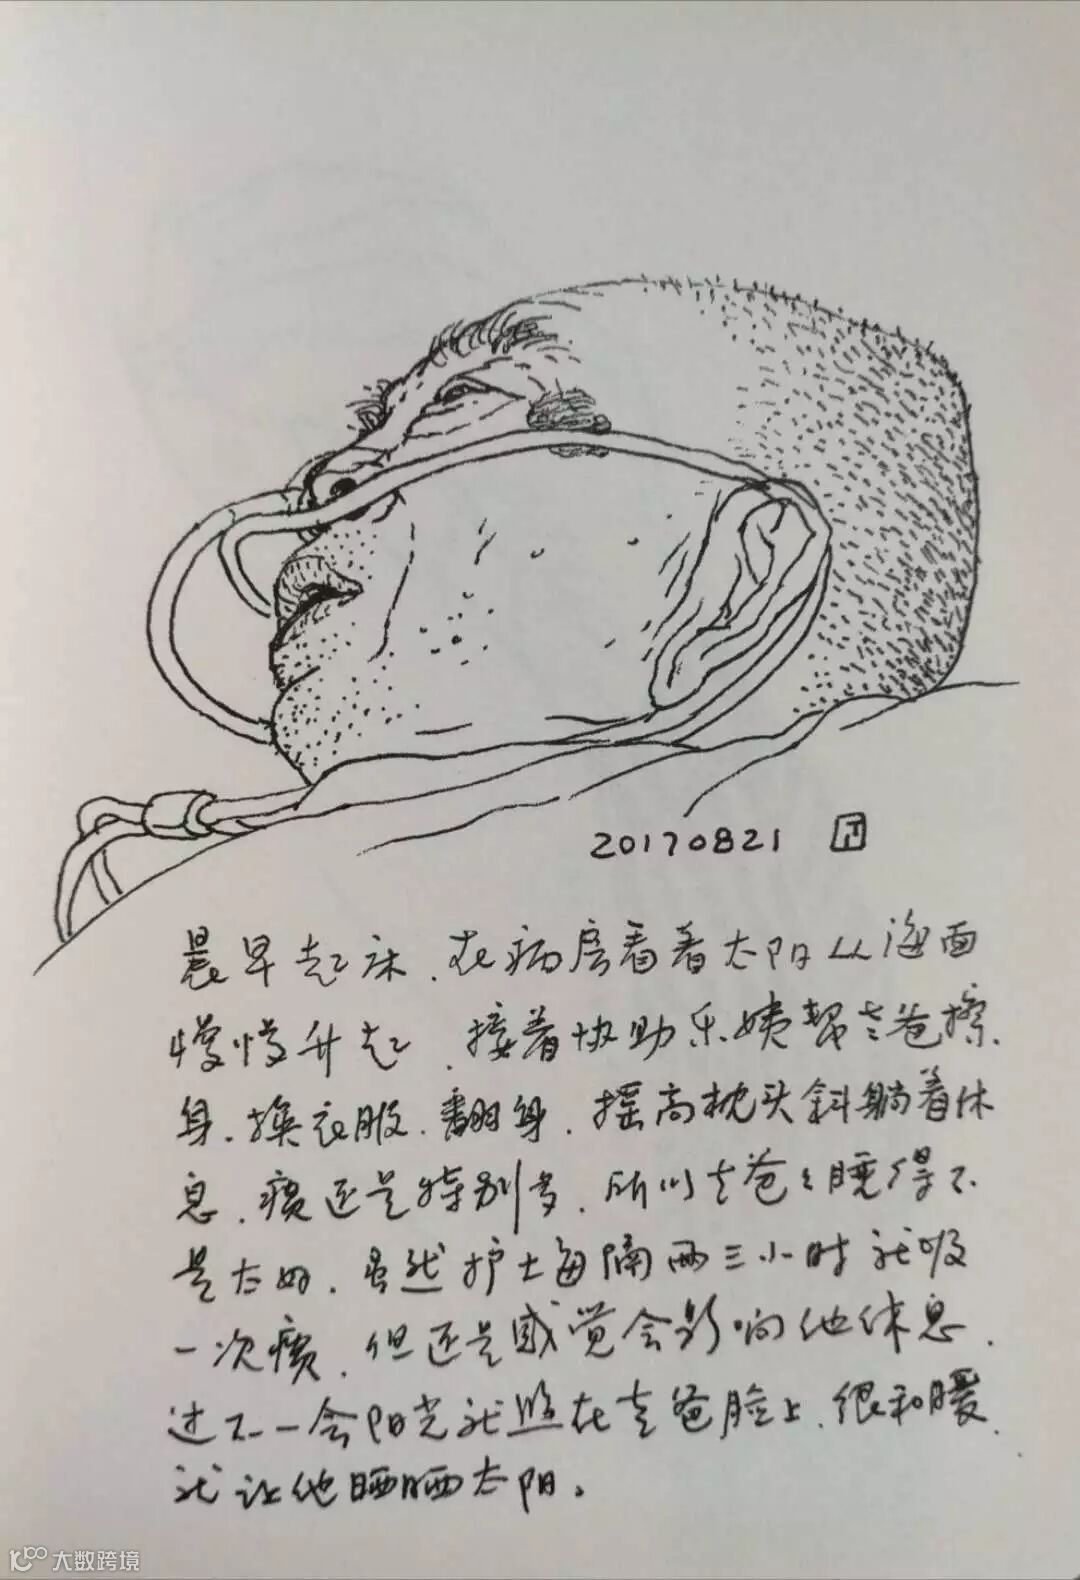 20170821
晨早起床、在病房看着太阳从海面
慢慢升起、接着协助乐姨帮老爸擦
身、换衣服、翻身、摇高枕头斜躺着休
息、痰还是特别多、所以老爸爸睡得不
是太好、虽然护士每隔两三小时就吸
一次痰、但还是感觉会影响他休息、
过不一会阳光就照在老爸脸上、很和暖、
就让他晒晒太阳。
大数跨境